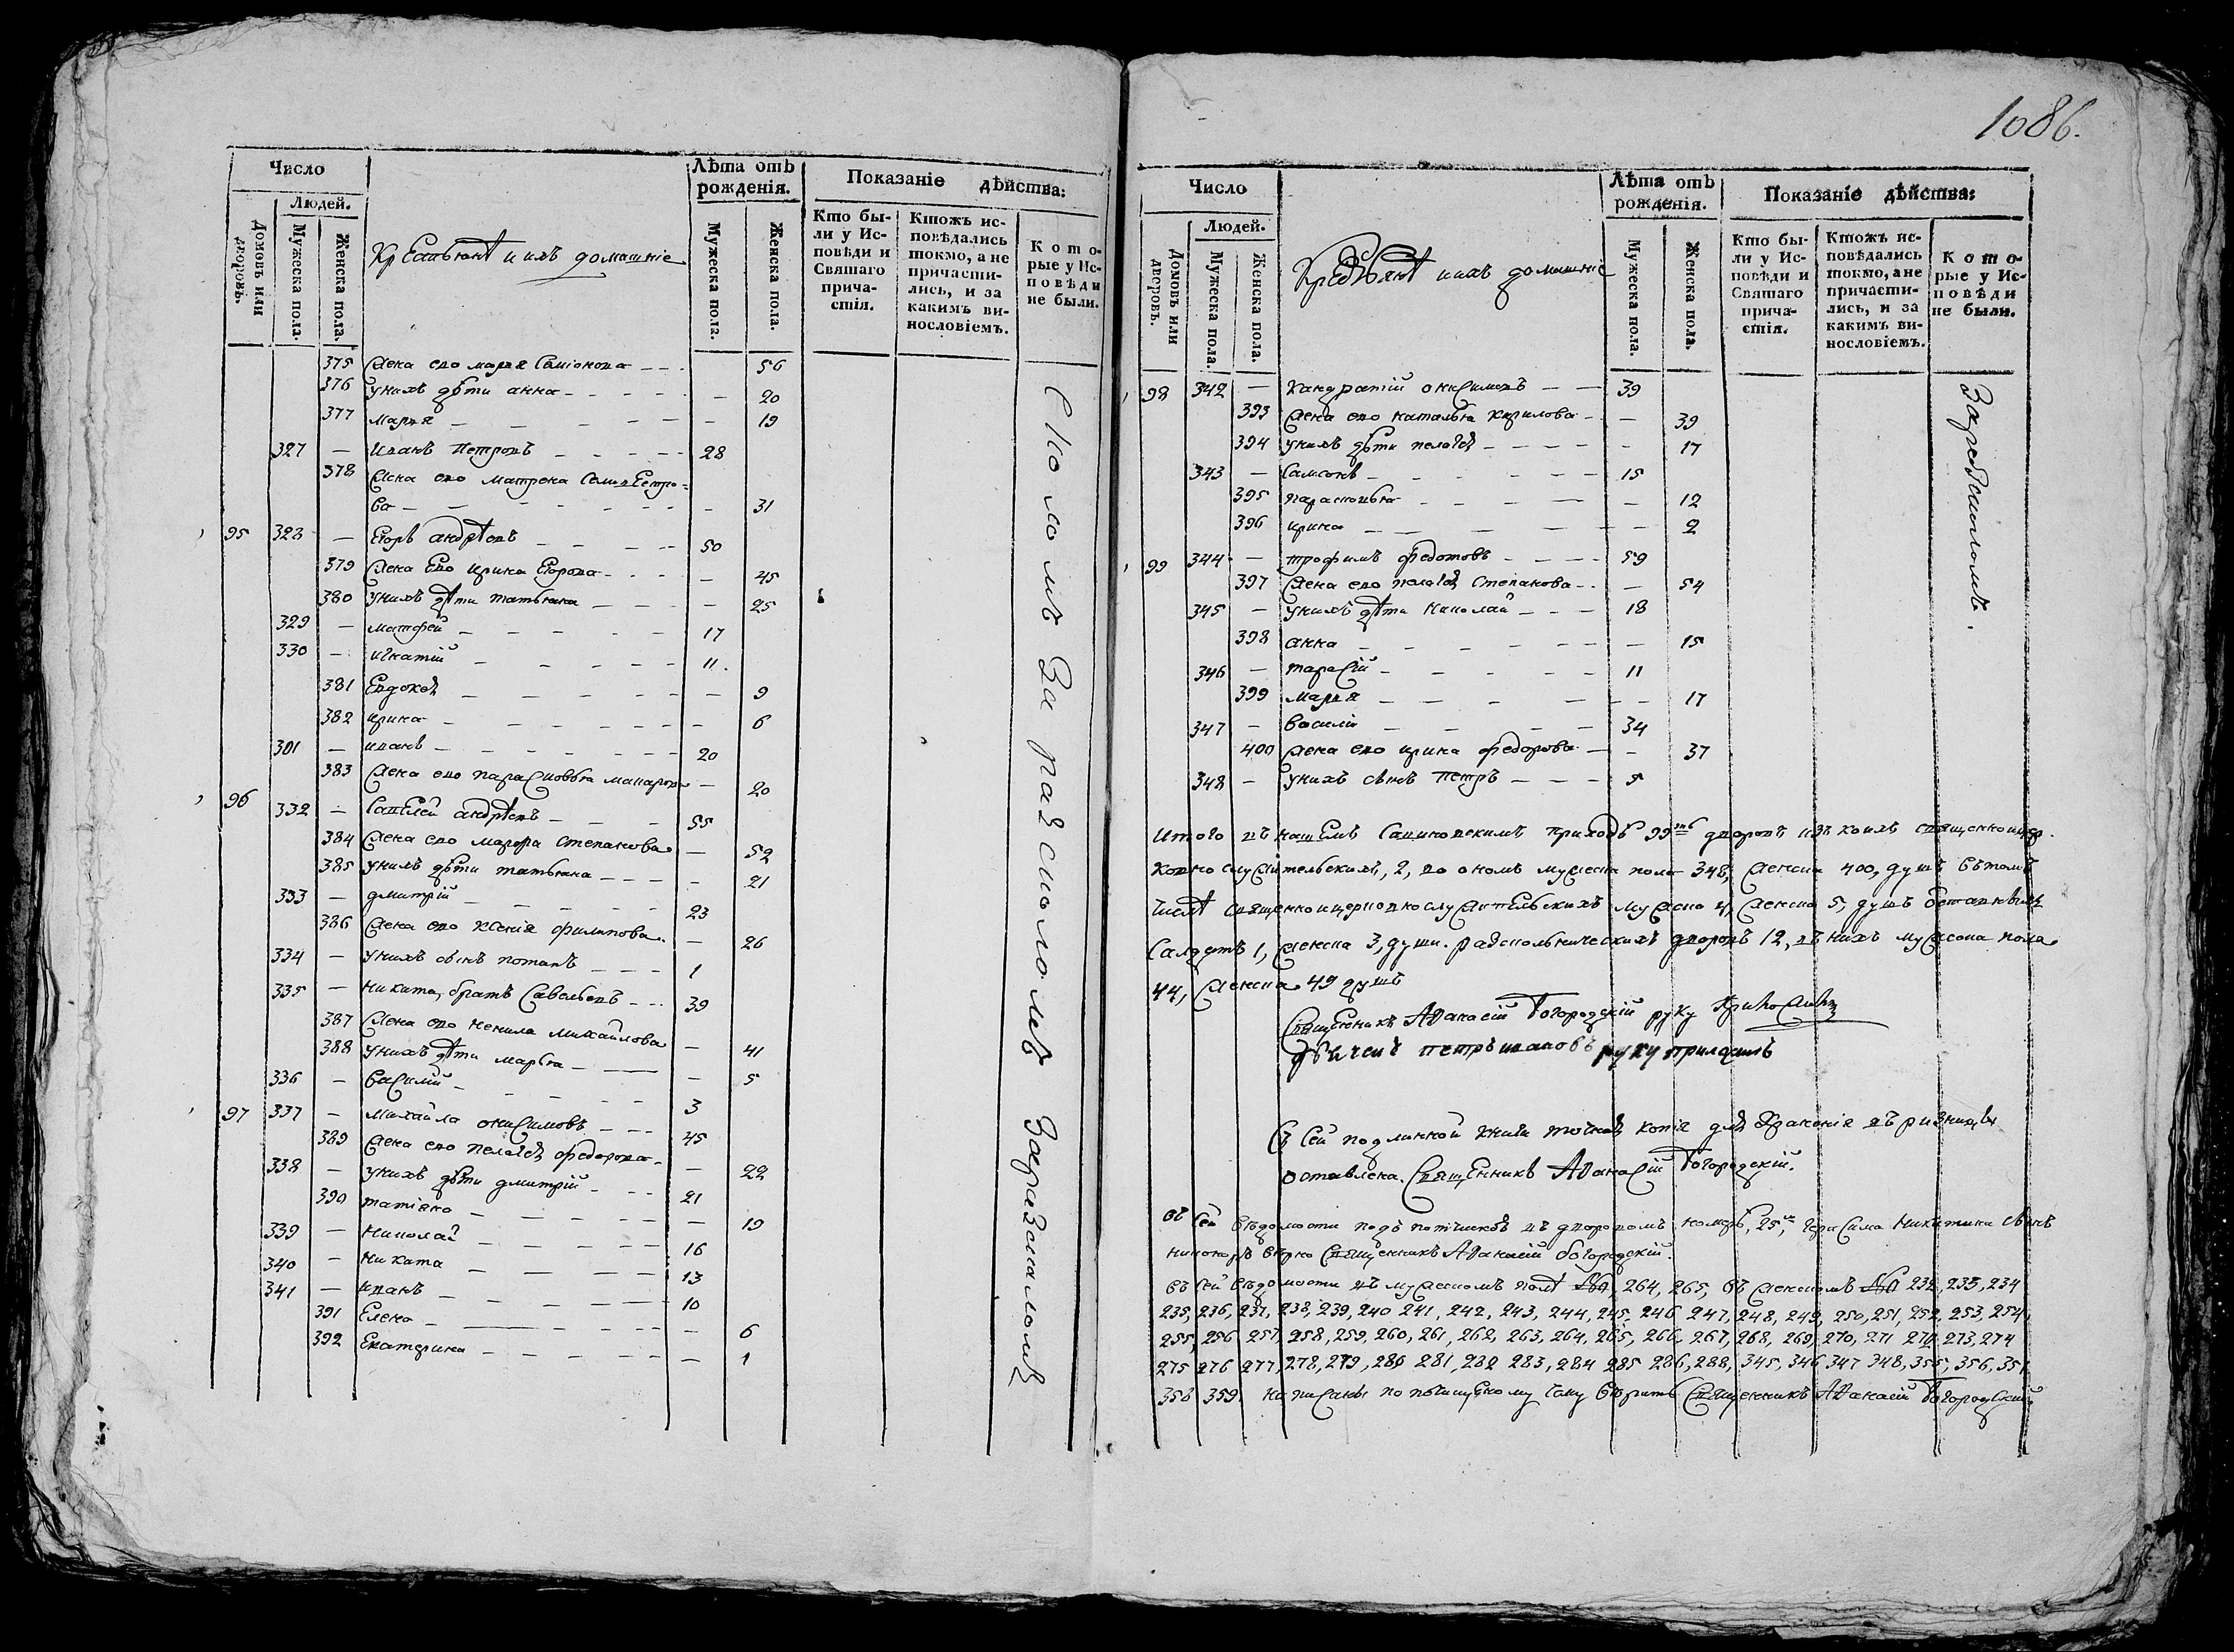 Число
Людей.
Домовъ или дворовъ.
Мужеска пола.
Женска пола.
Крестьянѣ и ихъ домашніе
Лѣта отъ рожденія.
Мужеска пола.
Женска пола.
Показаніе дѣйства:
Кто были у Исповѣди и Святаго причастія.
Ктожъ исповѣдались токмо, а не причастились, и за какимъ винословіемъ.
Которые у Исповѣди не были.
375 Жена ево марья Семіонова 56
376 у нихъ дѣти анна 20
377 марья 19
327 — иванъ петровъ 28
378 Жена ево матрена
ва — 31
95 328 — Егоръ андрѣевъ 50
379 Жена Ево ирина Егорова — 45
380 у нихъ дѣти татьяна — 25
329 — матфей 17
330 — игнатій 11.
381 Евдокея — 9
382 ирина — 6
301 — иванъ 20
383 Жена ево парасковья макарова — 20
96 332 — Савелей андрѣевъ 55
384 Жена ево марфа степанова — 52
385 у нихъ дѣти татьяна — 21
333 — дмитрій 23
386 Жена ево ксенія филипова — 26
334 — у нихъ сынъ потапъ 1
335 — никита, братъ Савельевъ 39
387 Жена ево ненила михайлова — 41
388 у нихъ дѣти марья — 5
336 — василій 3
97 337 — михайла онисимовъ 45
389 Жена ево пелагея федорова — 22
338 — у нихъ дѣти дмитрій 21
390 татіяна — 19
339 — николай 16
340 — никита 13
341 — иванъ 10
391 Елена — 6
392 Екатерина — 1
за разсколомъ
За разсколомъ
1086.
Число
Людей.
Домовъ или дворовъ.
Мужеска пола.
Женска пола.
Крестьянѣ и ихъ домашніе
Лѣта отъ рожденія.
Мужеска пола.
Женска пола.
Показаніе дѣйства:
Кто были у Исповѣди и Святаго причастія.
Ктожъ исповѣдались токмо, а не причастились, и за какимъ винословіемъ.
Которые у Исповѣди не были.
98 342 — Кандратій онисимовъ 39
393 Жена ево наталья кирилова — 39
394 у нихъ дѣти пелагея — 17
343 — Самсонъ 15
395 парасковья — 12
396 ирина — 2
99 344 — трофимъ федотовъ 59
397 Жена ево пелагея Степанова — 54
345 — у нихъ дѣти николай 18
398 анна — 15
346 — тарасій 11
399 марья — 17
347 — василій 34
400 Жена ево ирина федорова — 37
348 — у нихъ сынъ петръ 5
За разсколомъ.
Итого въ нашемъ приходѣ 99ть дворовъ изъ коихъ священноцер-
ковнослужительскихъ, 2, во ономъ мужеска пола 348, женска 400, душъ въ томъ
числѣ священноцерковнослужительскихъ мужеска 4, женска 5, душъ
1, женска 3, души. раскольническихъ дворовъ 12, въ нихъ мужеска пола
44, женска 49 душъ
Священникъ Афанасій Богородскій руку приложилъ
дьячекъ петръ ивановъ руку приложилъ
Съ Сей подлинной книги точная копія для храненія въ ризницѣ
оставлена. Священникъ Афанасій Богородскій.
въ Сей вѣдомости подъ въ дворовомъ номерѣ, 25м, герасима никитина сынъ
вѣрно Священникъ Афанасій богородскій.
въ Сей вѣдомости въ мужескомъ полѣ №, 264, 265, въ женскомъ № 232, 233, 234
235, 236, 237, 238, 239, 240 241, 242, 243, 244, 245, 246 247, 248, 249, 250, 251, 252, 253, 254,
255, 256 257, 258, 259, 260, 261, 262, 263, 264, 265, 266, 267, 268, 269, 270, 271 272, 273, 274
275 276 277, 278, 279, 280 281, 282 283, 284 285 286, 288, 345, 346 347 348, 355, 356, 357
358 359. написаны по Священникъ Афанасій Богородскій